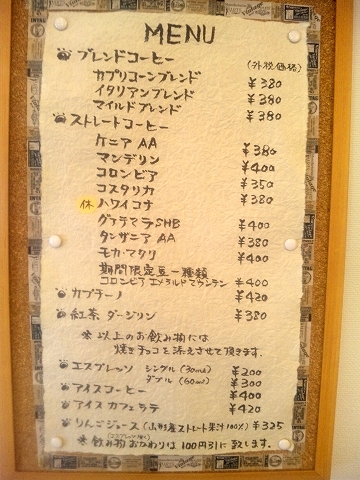 MENU
ブレンドコーヒー (外税価格)
カプリコーンブレンド ¥380
イタリアンブレンド ¥380
マイルドブレンド ¥380
ストレートコーヒー
ケニア AA ¥380
マンデリン ¥400
コロンビア ¥350
コスタリカ ¥380
休 ハワイコナ
グァテマラSHB ¥400
タンザニア AA ¥380
モカ・マタリ ¥400
期間限定豆一種類
コロンビア エメラルドマウンテン ¥400
カプチーノ ¥420
紅茶 ダージリン ¥380
※ 以上のお飲み物には
焼きチョコを添えさせて頂きます.
エスプレッソ シングル (30ml) ¥200
ダブル (60ml) ¥300
アイスコーヒー ¥400
アイスカフェラテ ¥420
りんごジュース (山形産ストレート果汁100%) ¥325
※ 飲み物おかわりは 100円引に致します.